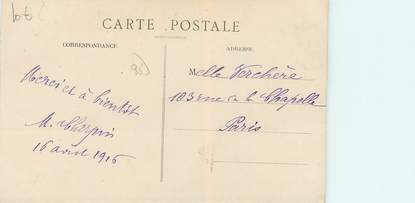 CARTE POSTALE
CORRESPONDANCE
ADRESSE
95
Merci et à bientôt
M.
16 août 1916
Melle Verchère
103 rue de la Chapelle
Paris